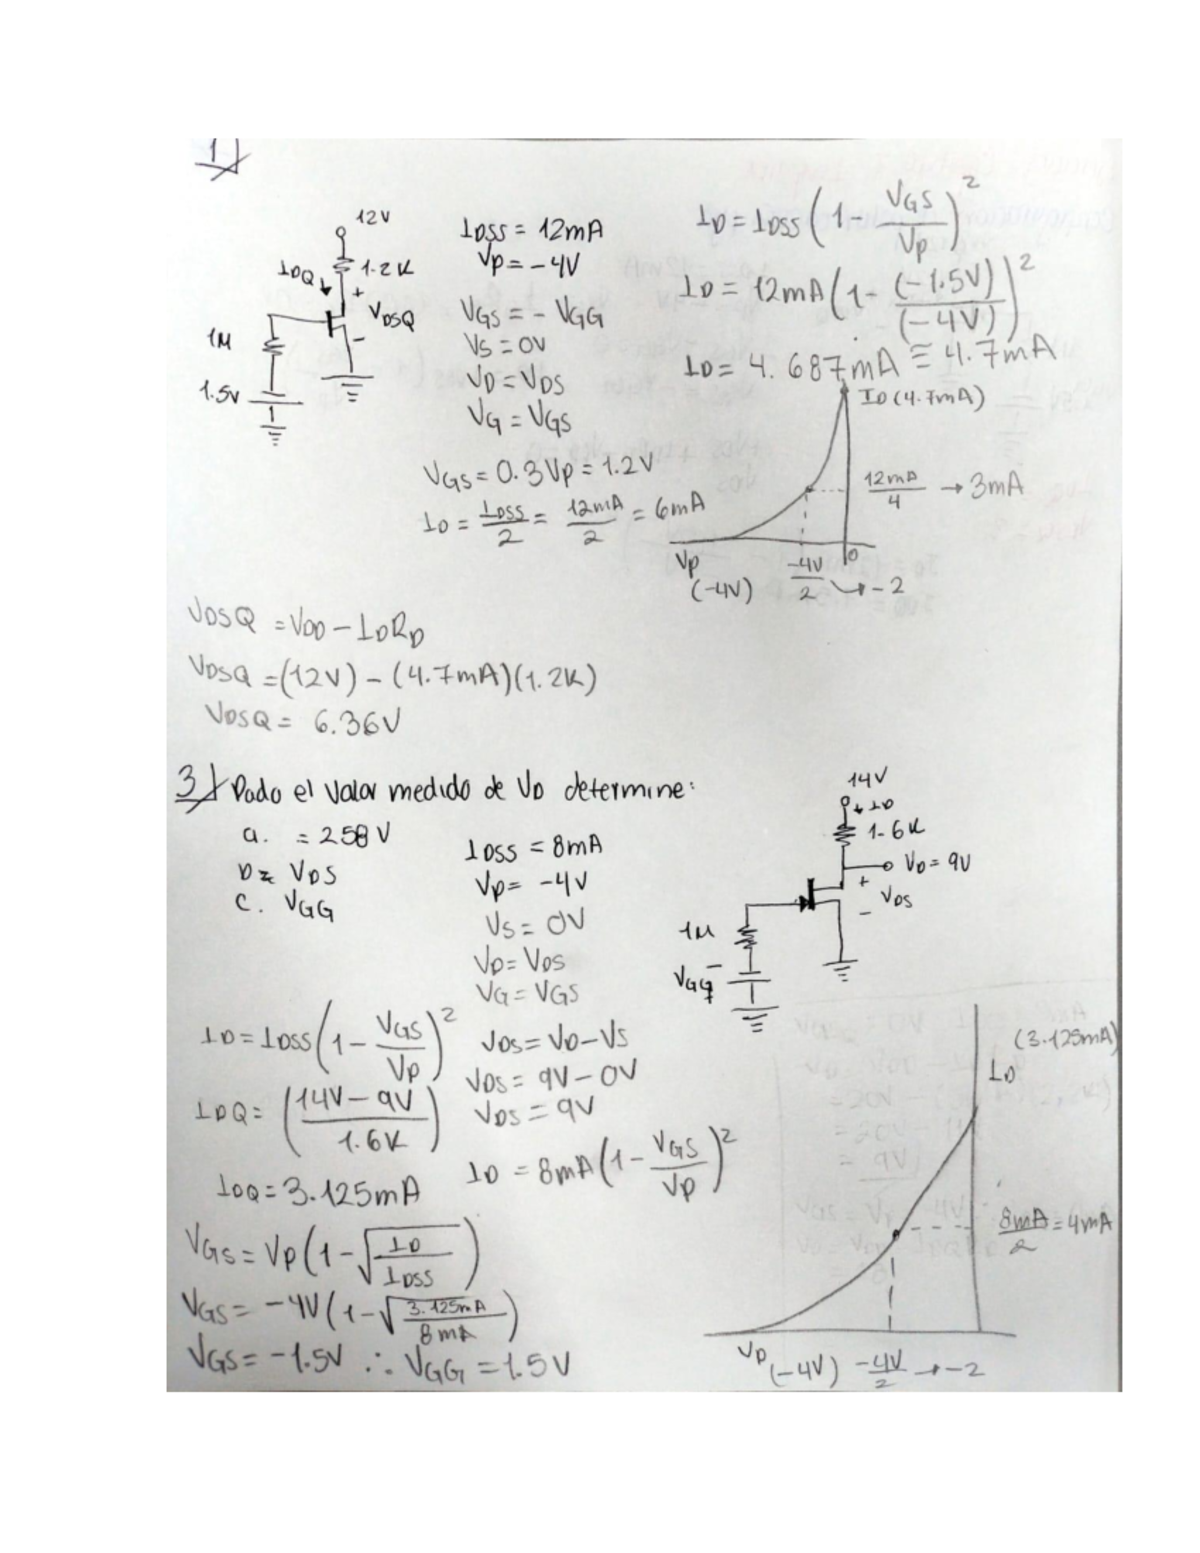 1)
12V
1.2K
IDQ
+
VDSQ
-
1M
1.5V
IDSS = 12mA
Vp = -4V
VGS = - VGG
VS = 0V
VD = VDS
VG = VGS
VGS = 0.3Vp = 1.2V
ID = IDSS/2 = 12mA/2 = 6mA
ID = IDSS (1 - VGS/Vp)²
ID = 12mA (1 - (-1.5V)/(-4V))²
ID = 4.687mA ≅ 4.7mA
ID (4.7mA)
12mA/4 → 3mA
Vp
(-4V)
-4V/2 → -2
0
VDSQ = VDD - IDRD
VDSQ = (12V) - (4.7mA)(1.2K)
VDSQ = 6.36V
3) Dado el valor medido de VD determine:
a. = 258 V
b = VDS
c. VGG
IDSS = 8mA
Vp = -4V
VS = 0V
VD = VDS
VG = VGS
14V
ID
1.6K
VD = 9V
+
VDS
-
1M
VGG
-
+
ID = IDSS (1 - VGS/Vp)²
IDQ = (14V - 9V / 1.6K)
IDQ = 3.125mA
VDS = VD - VS
VDS = 9V - 0V
VDS = 9V
ID = 8mA (1 - VGS/Vp)²
VGS = Vp (1 - √(ID/IDSS))
VGS = -4V (1 - √(3.125mA/8mA))
VGS = -1.5V ∴ VGG = 1.5V
(3.125mA)
ID
8mA/2 = 4mA
Vp
(-4V)
-4V/2 → -2